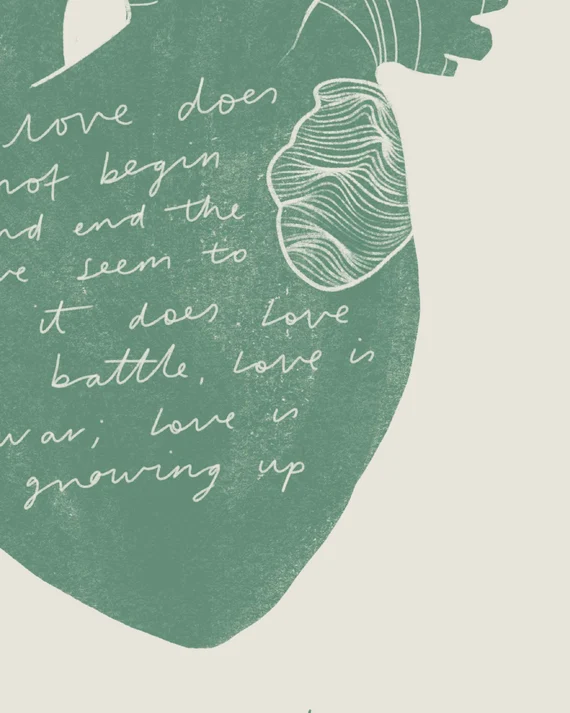 love does
not begin
nd end the
ve seem to
it does love
battle, love is
war; love is
growing up